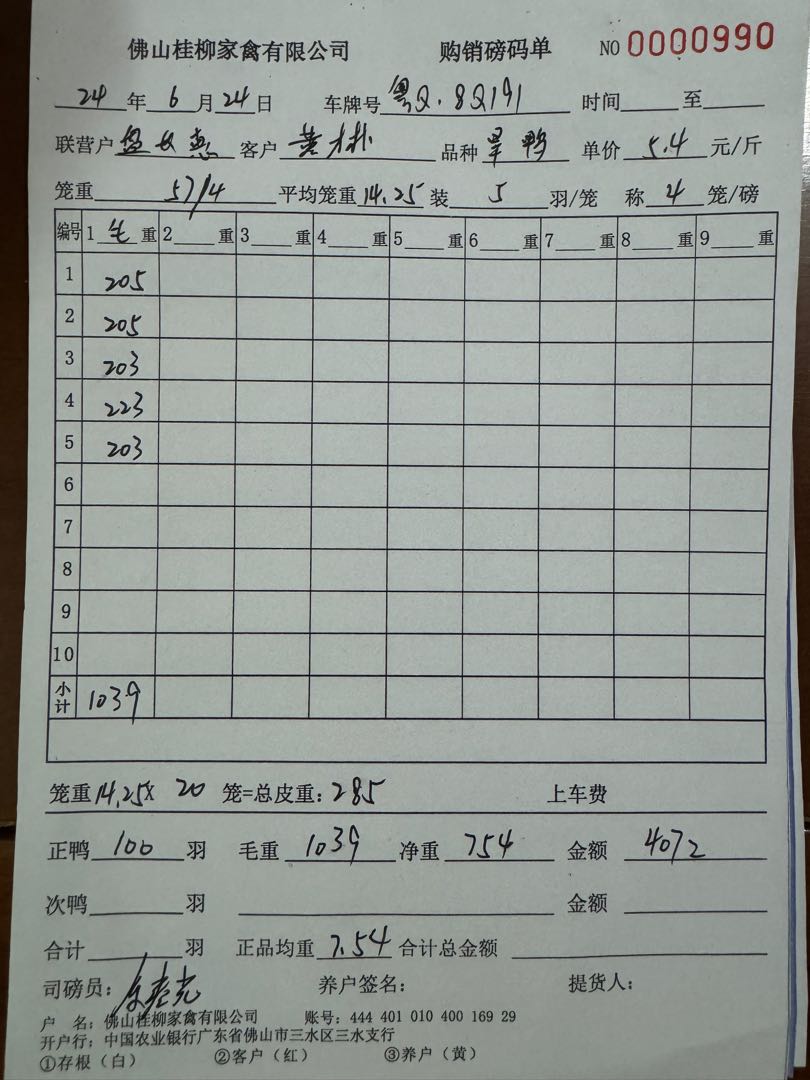 佛山桂柳家禽有限公司 购销磅码单 NO 0000990
24 年 6 月 24 日 车牌号 粤Q·8Q191 时间 至
联营户 客户 黄木林 品种 旱鸭 单价 5.4 元/斤
笼重 57/4 平均笼重 14.25 装 5 羽/笼 称 4 笼/磅
编号 1 毛 重 2 重 3 重 4 重 5 重 6 重 7 重 8 重 9 重
1 205
2 205
3 203
4 223
5 203
6
7
8
9
10
小计 1039
笼重 14.25X 20 笼=总皮重：285 上车费
正鸭 100 羽 毛重 1039 净重 754 金额 4072
次鸭 羽 金额
合计 羽 正品均重 7.54 合计总金额
司磅员： 养户签名： 提货人：
户 名：佛山桂柳家禽有限公司 账号：444 401 010 400 169 29
开户行：中国农业银行广东省佛山市三水区三水支行
①存根（白） ②客户（红） ③养户（黄）